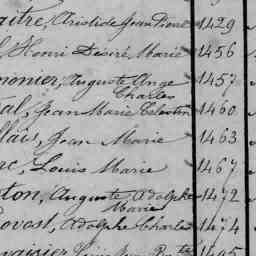 aître, Aristide Jean Pierre 1429
Henri Désiré Marie 1456
monier, Auguste Ange 1457
Charles
al, Jean Marie Célestin 1460
llais, Jean Marie 1463
Louis Marie 1467
ton, Auguste Adolphe 1472
Marie
ovost, Adolphe Charles 1474